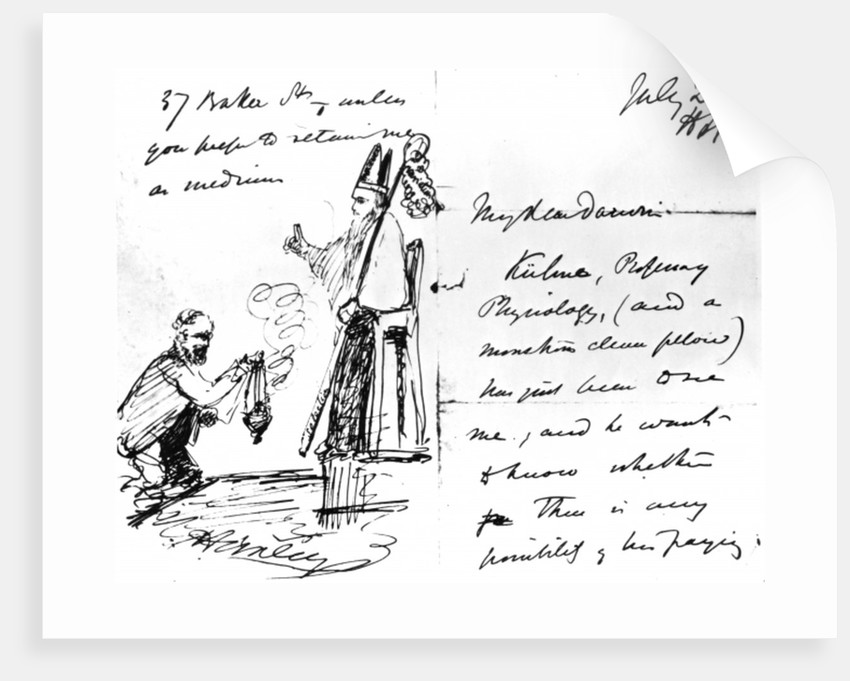 37 Baker St, unless
you prefer to retain me
as medium
July 2
My dear Darwin
Kühne, Prof. of
Physiology, (and a
monstrous clever fellow)
has just been to see
me, and he wants
to know whether
there is any
possibility of his paying